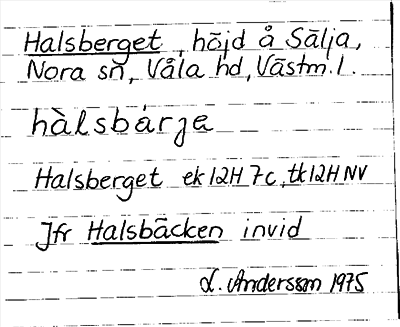 Halsberget, höjd å Sälja,
Nora sn, Våla hd, Västm. l.
hàlsbárja
Halsberget ek 12H 7c, tk 12H NV
Jfr Halsbäcken invid
L. Andersson 1975